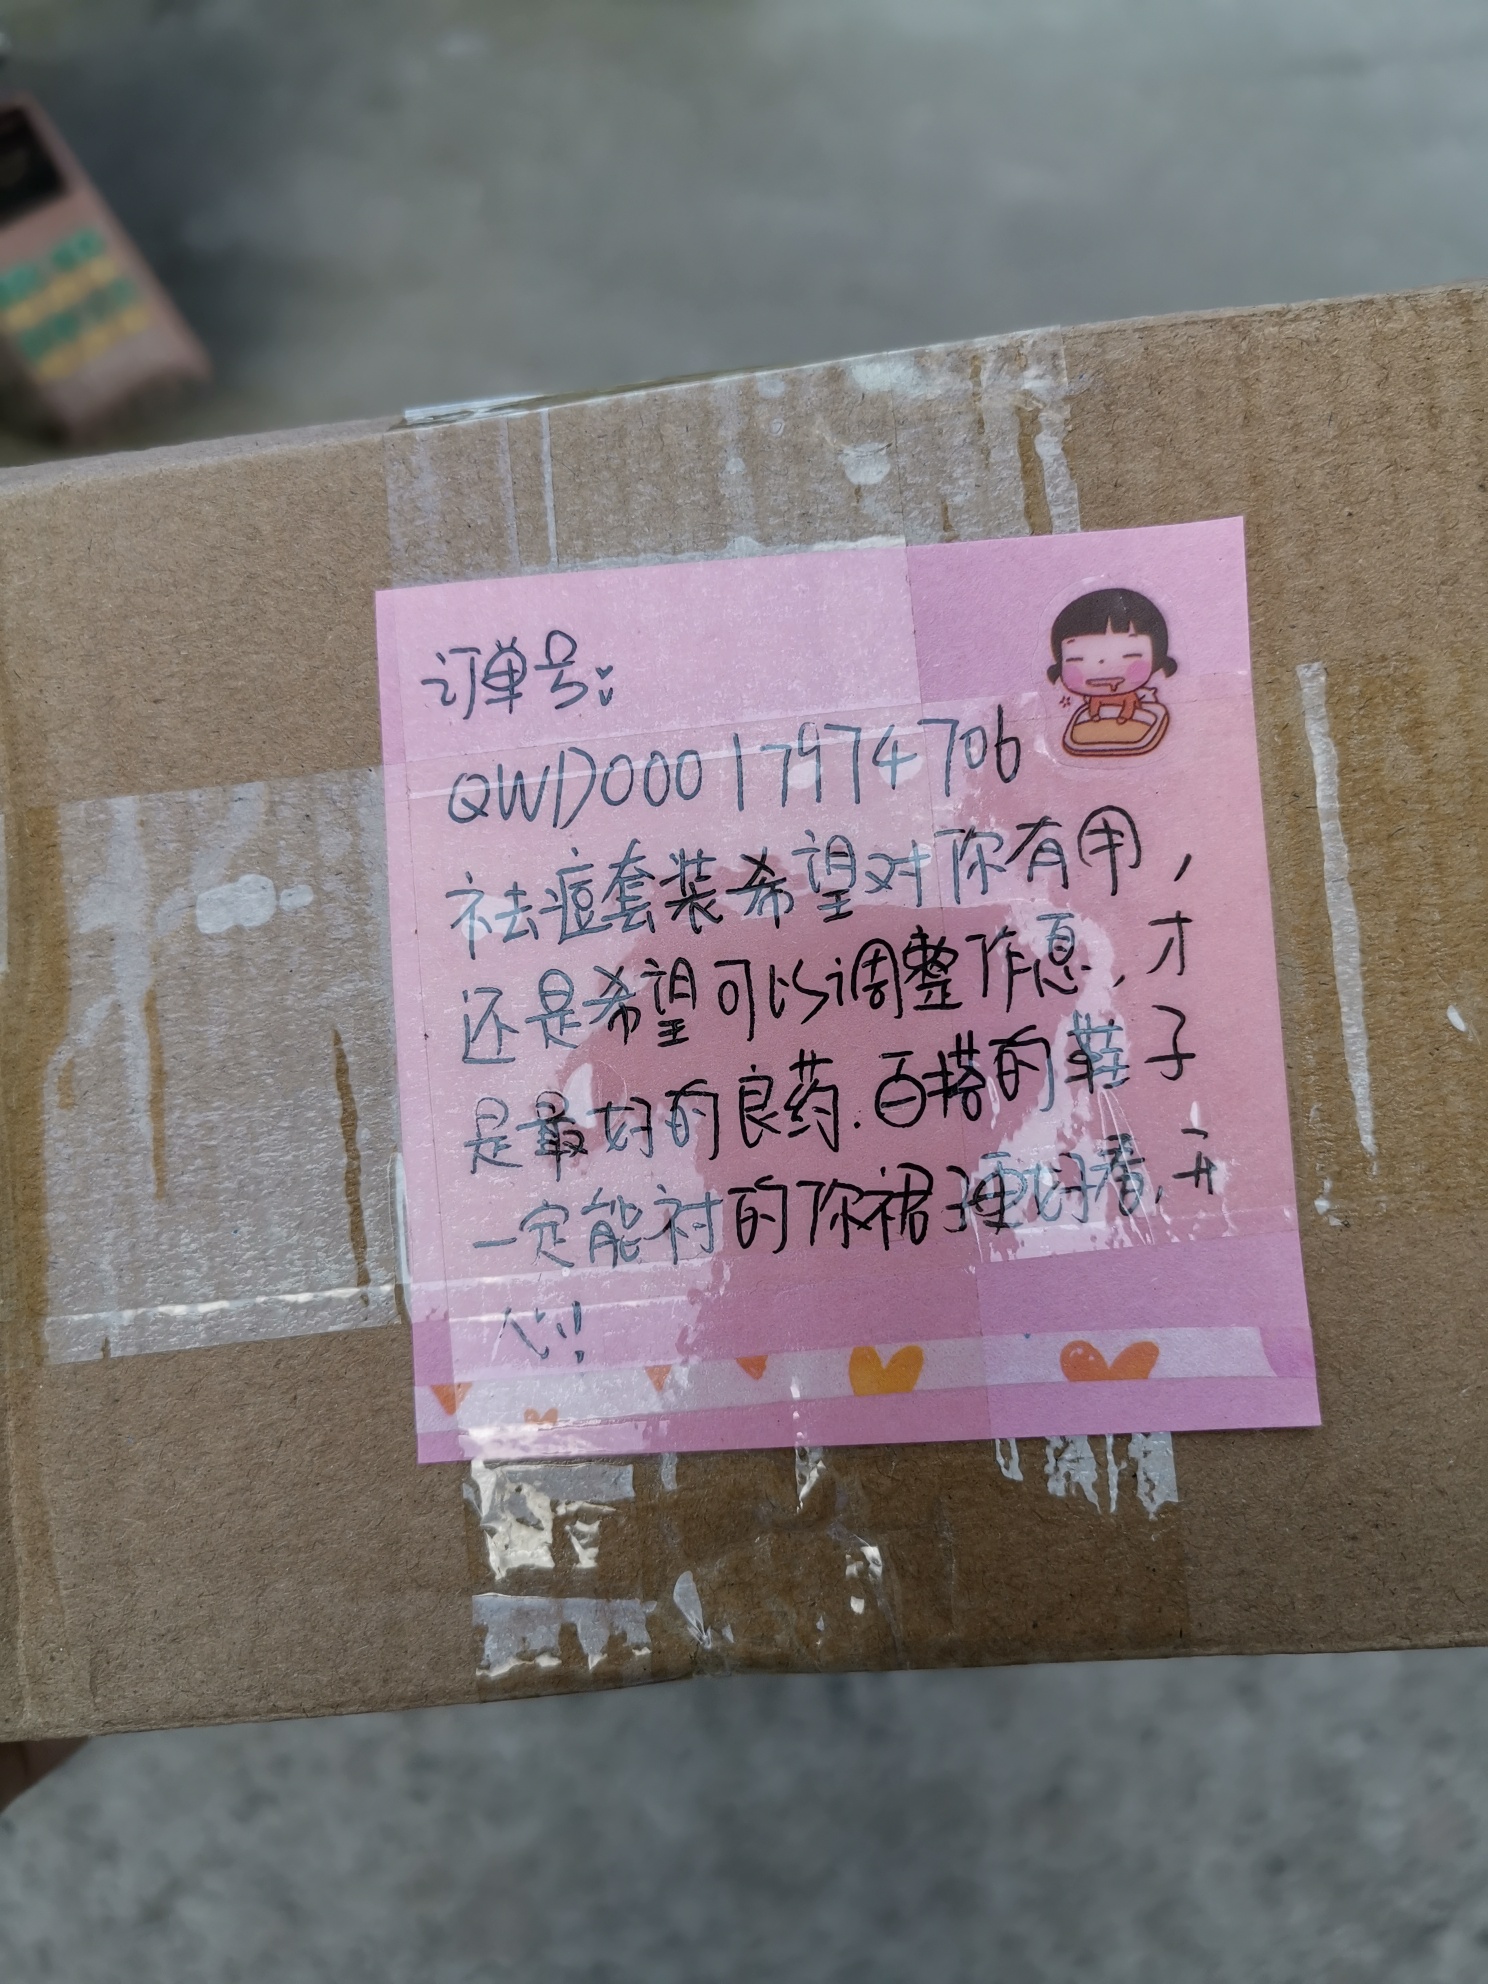 订单号:
QWD00017974706
祛痘套装希望对你有用,
还是希望可以调整作息,才
是最好的良药.百搭的鞋子
一定能衬的你裙子更好看,开
心!!